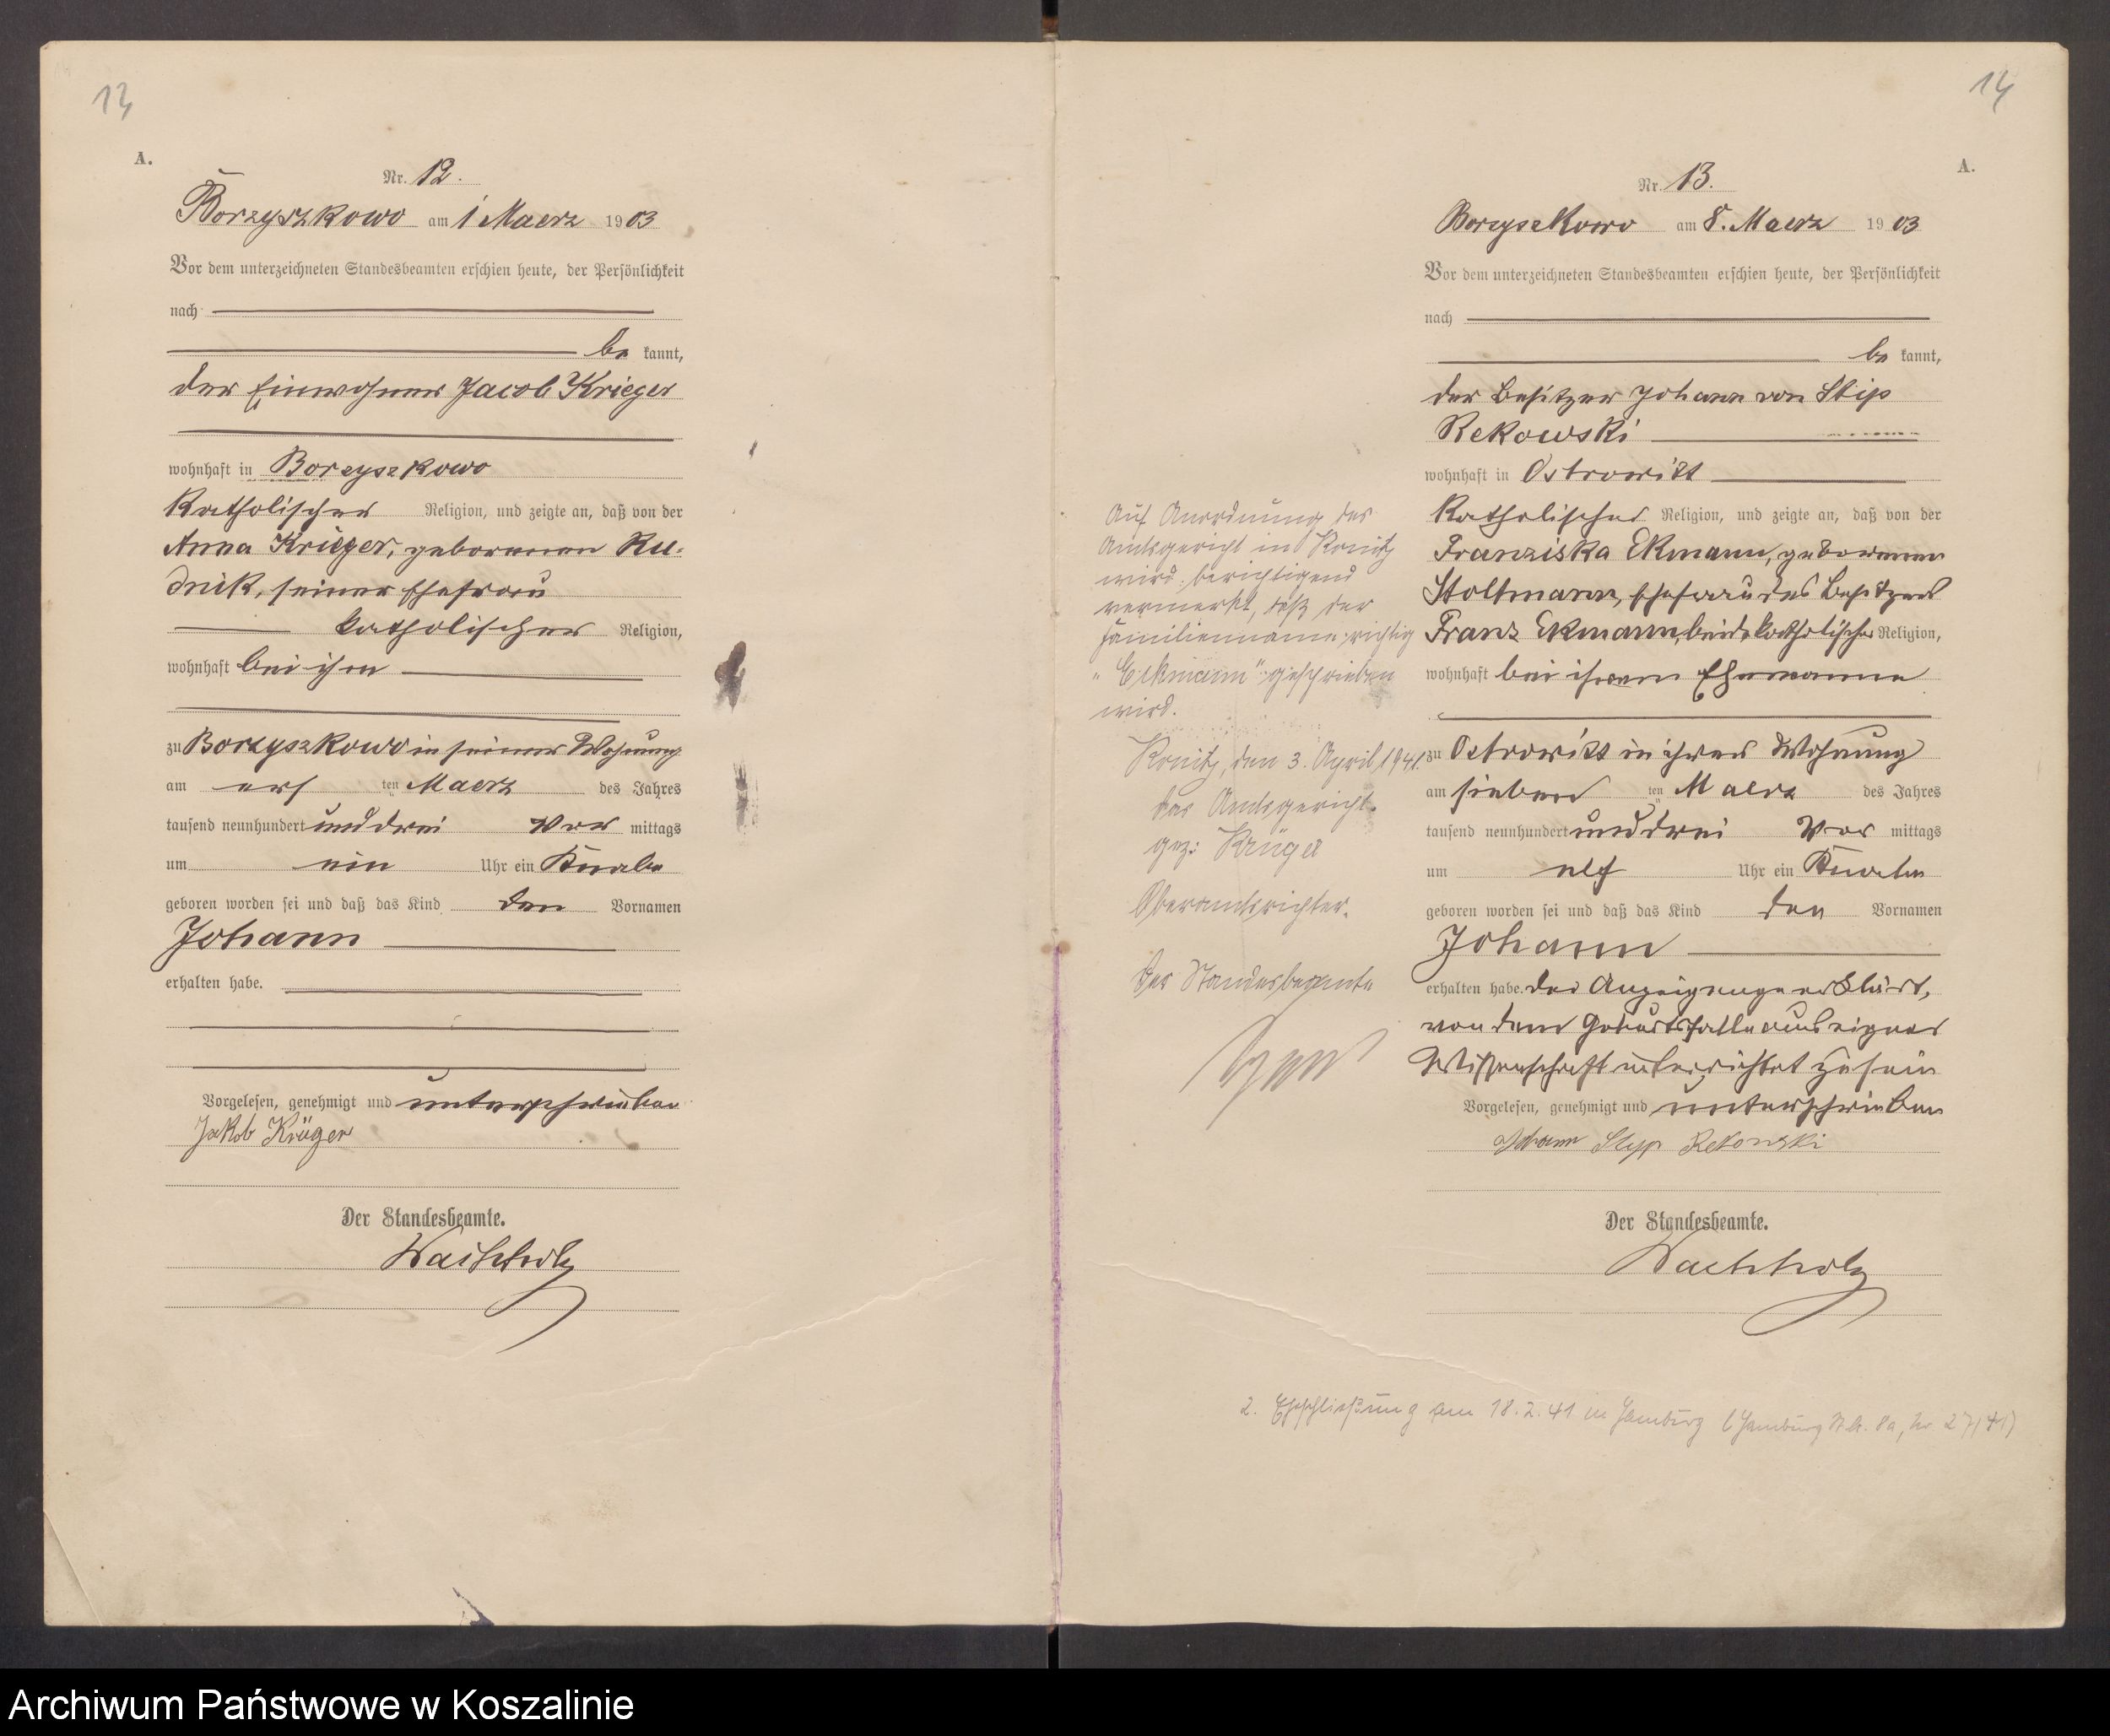 13
A.
Nr. 12.
Borzyszkowo am 1 Maerz 1903
Vor dem unterzeichneten Standesbeamten erschien heute, der Persönlichkeit
nach
be kannt,
der Einwohner Jacob Krieger
wohnhaft in Borzyszkowo
katholischer Religion, und zeigte an, daß von der
Anna Krieger, geborenen Ru-
dnik, seiner Ehefrau
katholischer Religion,
wohnhaft bei ihm
zu Borzyszkowo in seiner Wohnung
am ersten Maerz des Jahres
tausend neunhundert und drei Vor mittags
um ein Uhr ein Knabe
geboren worden sei und daß das Kind den Vornamen
Johann
erhalten habe.
Vorgelesen, genehmigt und unterschrieben
Jakob Krüger
Der Standesbeamte.
Wachholz
14
A.
Nr. 13.
Borzyszkowo am 8. Maerz 1903
Vor dem unterzeichneten Standesbeamten erschien heute, der Persönlichkeit
nach
be kannt,
der Besitzer Johann von Stip
Rekowski
wohnhaft in Ostrowitt
katholischer Religion, und zeigte an, daß von der
Franziska Ekmann, geborenen
Stoltmann, Ehefrau des Besitzers
Franz Ekmann, beide katholischer Religion,
wohnhaft bei ihrem Ehemanne
zu Ostrowitt in ihrer Wohnung
am siebenten Maerz des Jahres
tausend neunhundert und drei Vor mittags
um elf Uhr ein Knabe
geboren worden sei und daß das Kind den Vornamen
Johann
erhalten habe. Der Anzeigende erklärt,
von dem Geburtsfalle aus eigner
Wissenschaft unterrichtet zu sein
Vorgelesen, genehmigt und unterschrieben
Johann Styp Rekowski
Der Standesbeamte.
Wachholz
Auf Anordnung des
Amtsgericht in Konitz
wird berichtigend
vermerkt, daß der
Familienname richtig
"Eckmann" geschrieben
wird.
Konitz, den 3. April 1941.
Das Amtsgericht.
gez: Krüger
Oberamtsrichter.
Der Standesbeamte
2. Eheschließung am 18.2.41 in Hamburg (Hamburg St.A. 8a, Nr 27/41)
Archiwum Państwowe w Koszalinie